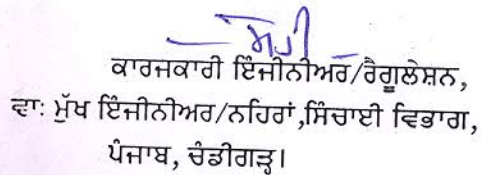 ਸਹੀ
ਕਾਰਜਕਾਰੀ ਇੰਜੀਨੀਅਰ/ਰੈਗੂਲੇਸ਼ਨ,
ਵਾ: ਮੁੱਖ ਇੰਜੀਨੀਅਰ/ਨਹਿਰਾਂ,ਸਿੰਚਾਈ ਵਿਭਾਗ,
ਪੰਜਾਬ, ਚੰਡੀਗੜ੍ਹ।